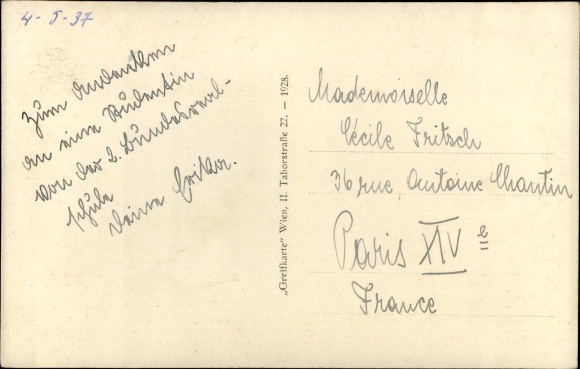 4-5-37
Zum Andenken
an eine Studentin
von der 2. Bundesreal-
schule
Deine Erika.
„Greifkarte" Wien, II. Taborstraße 22. — 1928.
Mademoiselle
Cécile Fritsch
36 rue Antoine Chantin
Paris XIV e
France